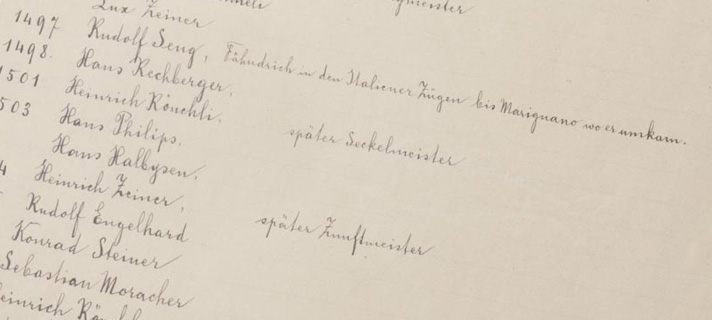 Lux Zeiner
1497 Rudolf Seng, Fähndrich in den Italiener Zügen bis Marignano wo er umkam.
1498. Hans Rechberger,
1501 Heinrich Röuchli, später Seckelmeister
503 Hans Philips,
Hans Halbysen,
4 Heinrich Zeiner, später Zunftmeister
Rudolf Engelhard
Konrad Steiner
Sebastian Moracher